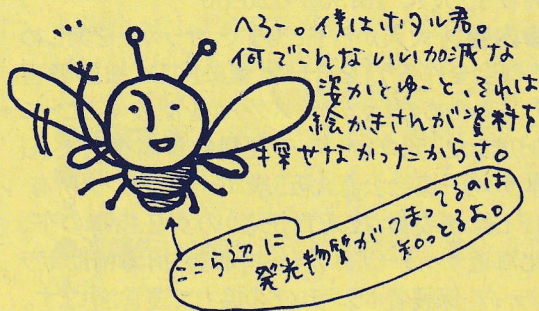 ...
へろー。僕はホタル君。
何でこんないい加減な
姿かとゆーと、それは
絵かきさんが資料を
探せなかったからさ。
ここら辺に
発光物質がつまってるのは
知っとるよ。